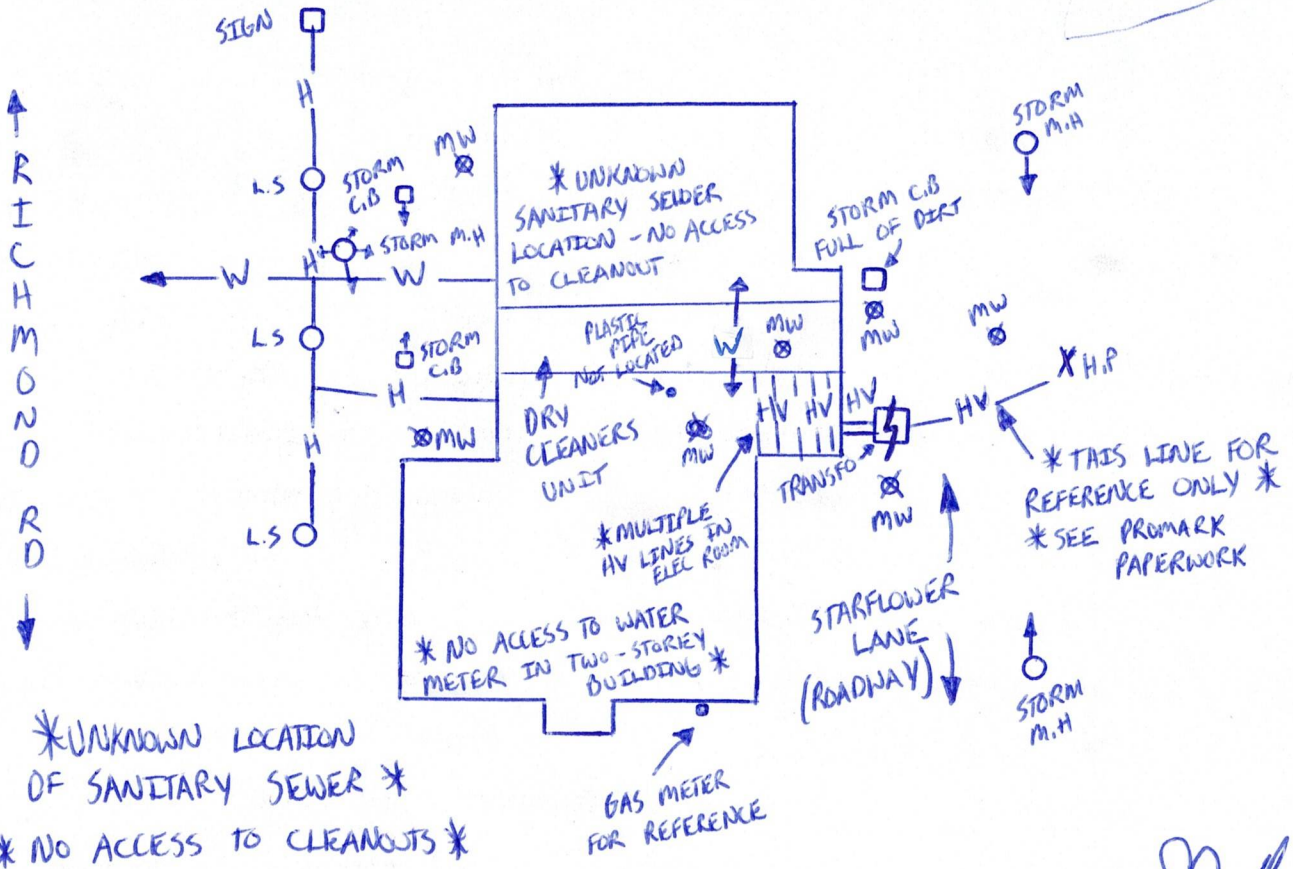 SIGN
H
L.S
STORM
C.B
MW
H
STORM M.H
W
W
L.S
STORM
C.B
H
MW
H
L.S
RICHMOND RD
* UNKNOWN
SANITARY SEWER
LOCATION - NO ACCESS
TO CLEANOUT
PLASTIC
PIPE
NOT LOCATED
W
MW
DRY
CLEANERS
UNIT
MW
HV
HV
HV
TRANSFO
*MULTIPLE
HV LINES IN
ELEC ROOM
* NO ACCESS TO WATER
METER IN TWO-STOREY
BUILDING *
STORM
M.H
STORM C.B
FULL OF DIRT
MW
MW
X H.P
HV
MW
* THIS LINE FOR
REFERENCE ONLY *
* SEE PROMARK
PAPERWORK
STARFLOWER
LANE
(ROADWAY)
STORM
M.H
GAS METER
FOR REFERENCE
*UNKNOWN LOCATION
OF SANITARY SEWER *
* NO ACCESS TO CLEANOUTS *